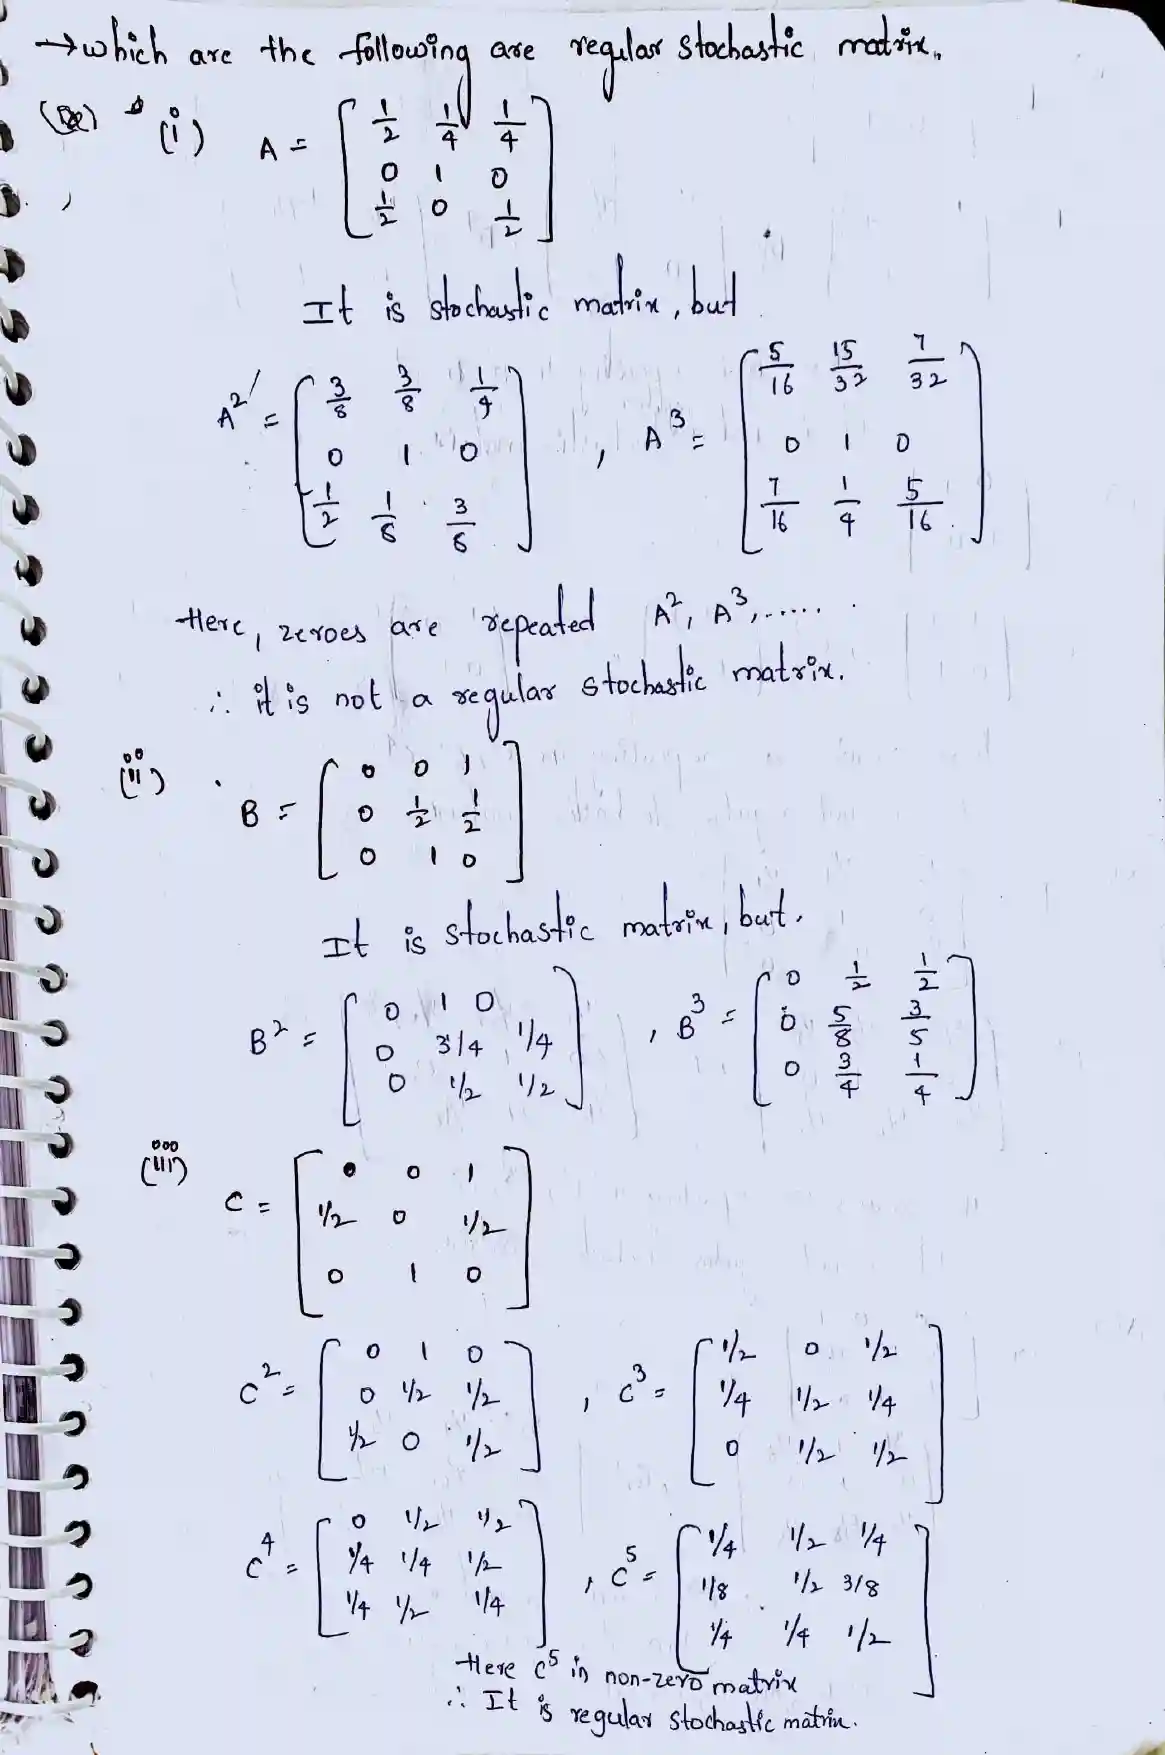 → which are the following are regular stochastic matrix.
(i) A = [ 1/2 1/4 1/4
0 1 0
1/2 0 1/2 ]
It is stochastic matrix, but
A² = [ 3/8 3/8 1/4
0 1 0
1/2 1/8 3/8 ] , A³ = [ 5/16 15/32 7/32
0 1 0
7/16 1/4 5/16 ]
Here, zeroes are repeated A², A³, ......
∴ it is not a regular stochastic matrix.
(ii) B = [ 0 0 1
0 1/2 1/2
0 1 0 ]
It is stochastic matrix, but.
B² = [ 0 1 0
0 3/4 1/4
0 1/2 1/2 ] , B³ = [ 0 1/2 1/2
0 5/8 3/5
0 3/4 1/4 ]
(iii) C = [ 0 0 1
1/2 0 1/2
0 1 0 ]
C² = [ 0 1 0
0 1/2 1/2
1/2 0 1/2 ] , C³ = [ 1/2 0 1/2
1/4 1/2 1/4
0 1/2 1/2 ]
C⁴ = [ 0 1/2 1/2
1/4 1/4 1/2
1/4 1/2 1/4 ] , C⁵ = [ 1/4 1/2 1/4
1/8 1/2 3/8
1/4 1/4 1/2 ]
Here C⁵ is non-zero matrix
∴ It is regular stochastic matrix.